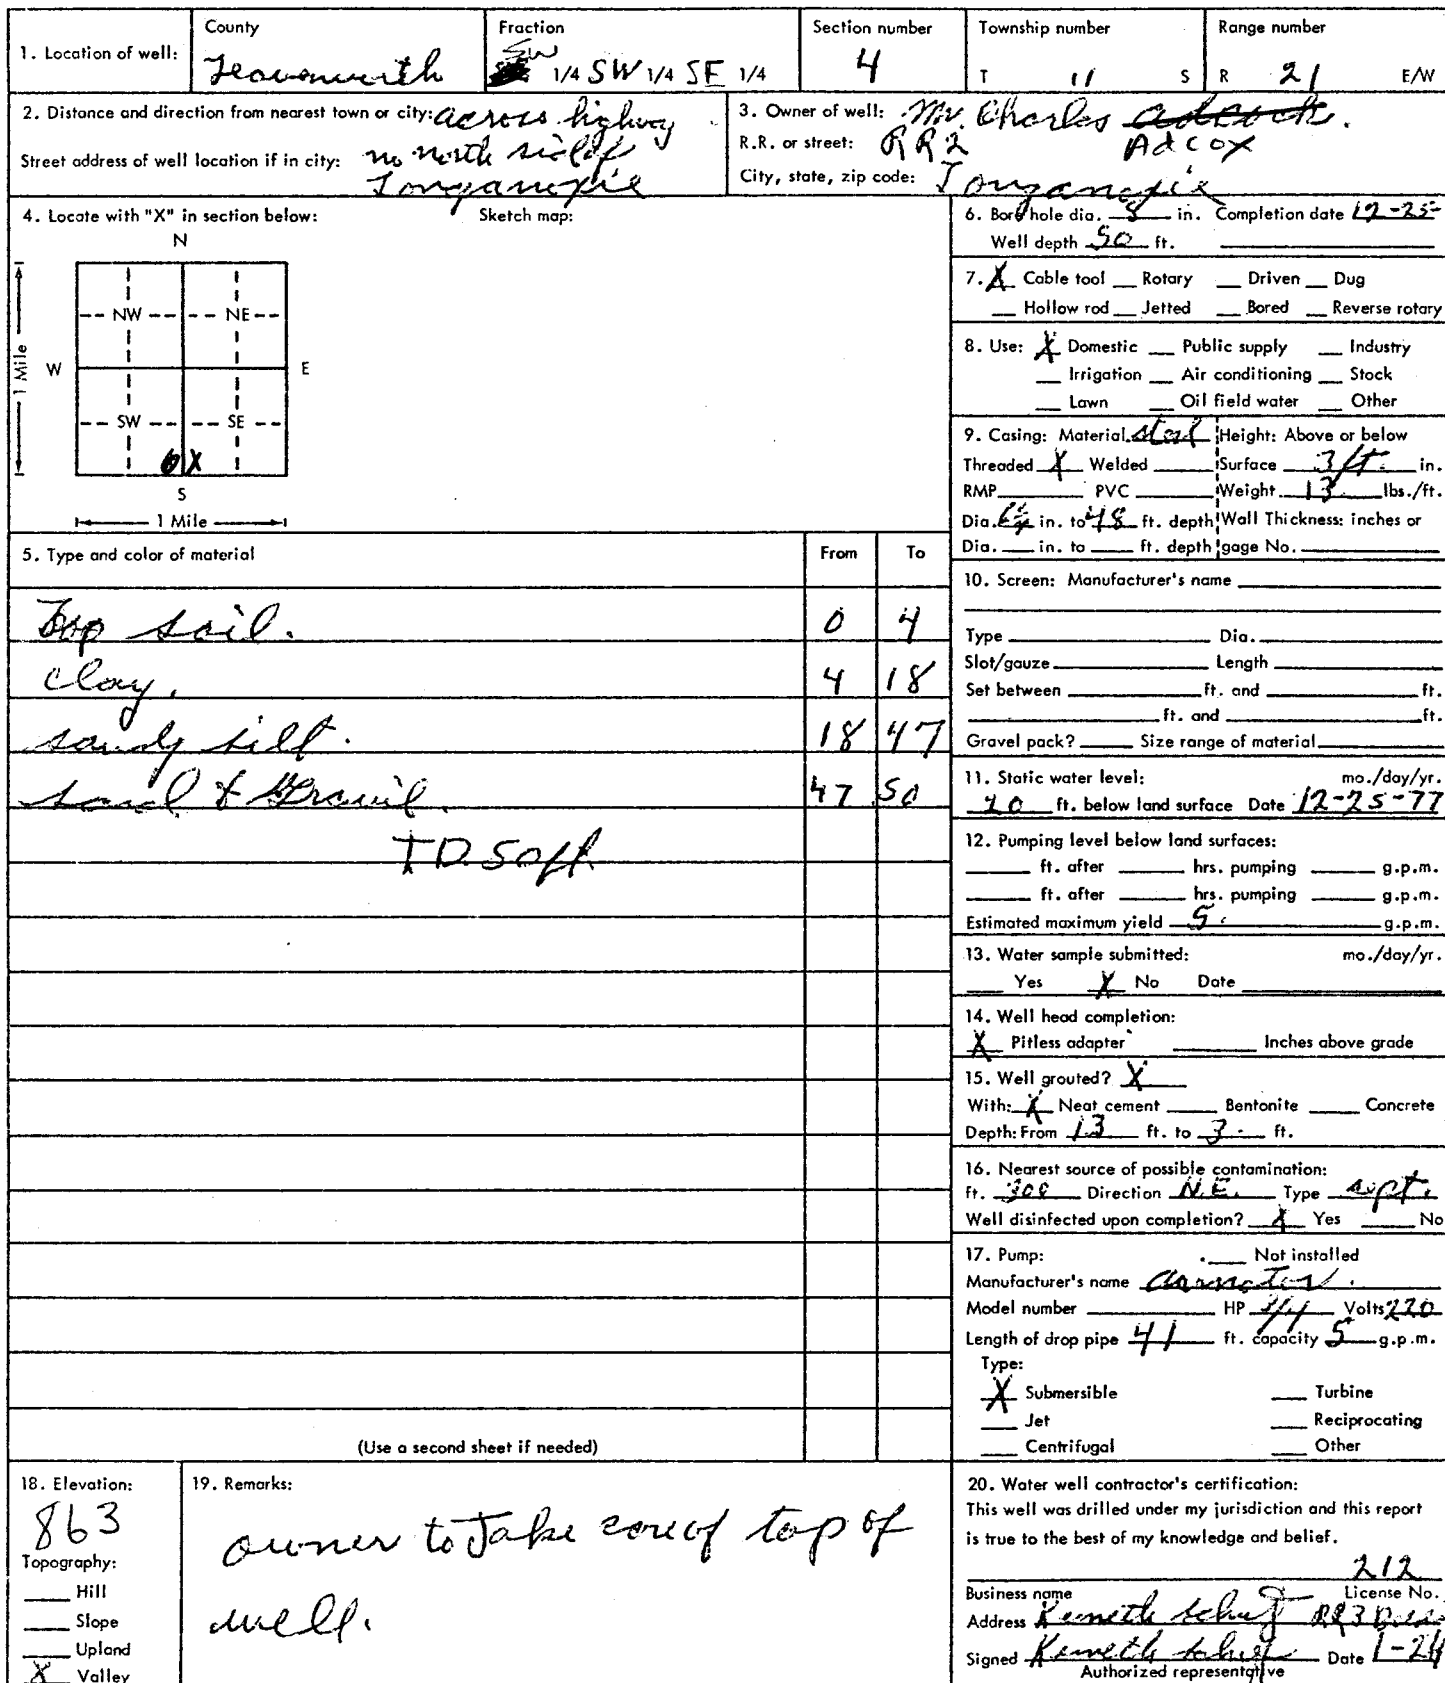 1. Location of well:
County
Leavenworth
Fraction
SW 1/4 SW 1/4 SE 1/4
Section number
4
Township number
T 11 S
Range number
R 21 E/W
2. Distance and direction from nearest town or city: across highway
Street address of well location if in city: no north side of
Tonganoxie
3. Owner of well: Mr. Charles Adcock.
R.R. or street: RR2 Adcox
City, state, zip code: Tonganoxie
4. Locate with "X" in section below:
Sketch map:
N
NW NE
W E
1 Mile
SW SE
X
S
1 Mile
5. Type and color of material From To
Top soil. 0 4
Clay. 4 18
sandy silt. 18 47
sand & Gravil. 47 50
T.D. 50 ft.
(Use a second sheet if needed)
6. Bore hole dia. 8 in. Completion date 12-25-
Well depth 50 ft.
7. X Cable tool Rotary Driven Dug
Hollow rod Jetted Bored Reverse rotary
8. Use: X Domestic Public supply Industry
Irrigation Air conditioning Stock
Lawn Oil field water Other
9. Casing: Material steel Height: Above or below
Threaded X Welded Surface 3 ft. in.
RMP PVC Weight 13 lbs./ft.
Dia. in. to 48 ft. depth Wall Thickness: inches or
Dia. in. to ft. depth gage No.
10. Screen: Manufacturer's name
Type Dia.
Slot/gauze Length
Set between ft. and ft.
ft. and ft.
Gravel pack? Size range of material
11. Static water level: mo./day/yr.
ft. below land surface Date 12-25-77
12. Pumping level below land surfaces:
ft. after hrs. pumping g.p.m.
ft. after hrs. pumping g.p.m.
Estimated maximum yield 5. g.p.m.
13. Water sample submitted: mo./day/yr.
Yes X No Date
14. Well head completion:
X Pitless adapter Inches above grade
15. Well grouted? X
With: X Neat cement Bentonite Concrete
Depth: From 13 ft. to 3 ft.
16. Nearest source of possible contamination:
ft. 300 Direction N.E. Type sept.
Well disinfected upon completion? X Yes No
17. Pump: Not installed
Manufacturer's name
Model number HP 3/4 Volts 220
Length of drop pipe 41 ft. capacity 5 g.p.m.
Type:
X Submersible Turbine
Jet Reciprocating
Centrifugal Other
18. Elevation:
863
Topography:
Hill
Slope
Upland
X Valley
19. Remarks:
owner to Take care of top of
well.
20. Water well contractor's certification:
This well was drilled under my jurisdiction and this report
is true to the best of my knowledge and belief.
212
Business name License No.
Address Kenneth RR3
Signed Kenneth Date 1-24
Authorized representative